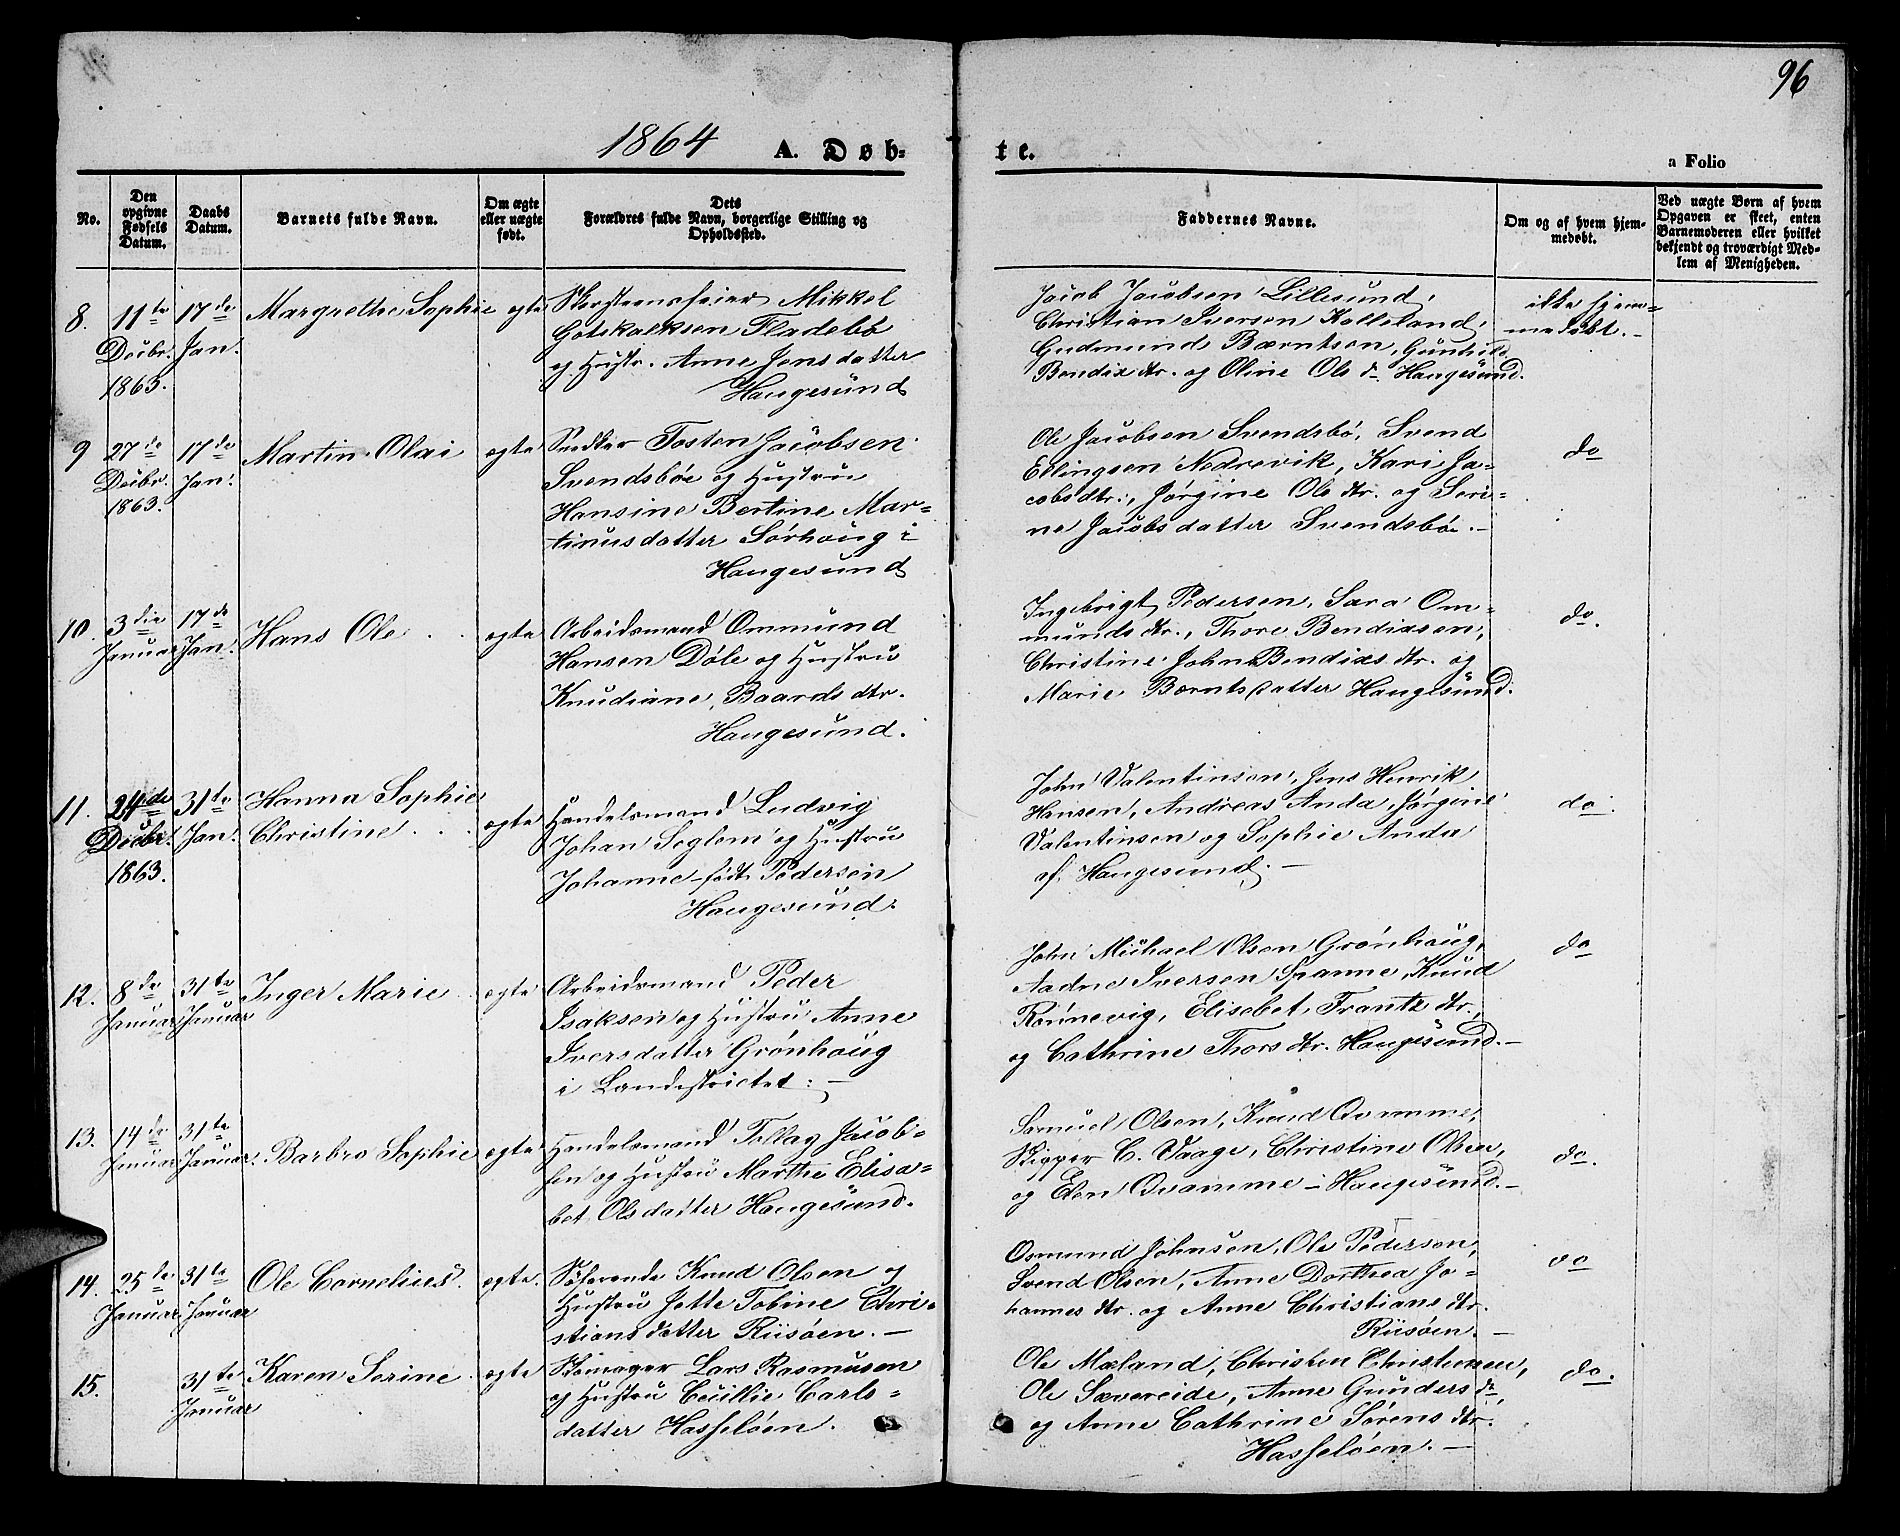 96
1864 A. Døb-
te.
a Folio
No.
Den
opgivne
Fødsels
Datum.
Daabs
Datum.
Barnets fulde Navn.
Om ægte
eller uægte
født.
Dets
Forældres fulde Navn, borgerlige Stilling og
Opholdssted.
Faddernes Navne.
Om og af hvem hjem-
medøbt.
Ved uægte Børn af hvem
Opgaven er skeet, enten
Barnemoderen eller hvilket
bekjendt og troværdigt Med-
lem af Menigheden.
8.
11te
Decbr.
1863.
17de
Jan.
Margrethe Sophie
egte
Skorsteensfeier Mikkel
Gotskalksen Fladebö
og Hustr. Anne Jensdatter
Haugesund
Jacob Jacobsen Lillesund,
Christian Iversen Kolleland,
Gudmund Bærntsen, Gunhild
Bendix dtr. og Oline Ols dr. Haugesund.
ikke hjem-
medöbt.-
9
27de
Decbr.
1863.
17de
Jan.
Martin Olai
egte
Snedker Tosten Jacobsen
Svendsböe og Hustru
Hansine Bertine Mar-
tinusdatter Sörhoug i
Haugesund
Ole Jacobsen Svendsbö, Svend
Ellingsen Nedrevik, Kari Ja-
cobsdtr., Jörgine Ols dtr. og Seri-
ne Jacobsdatter Svendsböe.-
do
10.
3die
Januar
17de
Jan.
Hans Ole
egte
Arbeidsmand Ommund
Hansen Döle og Hustru
Knudiane Baards dtr.
Haugesund.
Ingebrigt Pedersen, Sara Om-
munds dtr., Thore Bendixsen,
Christine John Bendixs dtr. og
Marie Berntsdatter Haugesund.
do.
11.
24de
Decbr.
1863.
31te
Jan.
Hanna Sophie
Christine
egte
Handelsmand Ludvig
Johan Seglem og Hustru
Johanne födt Pedersen
Haugesund.
John Valentinsen, Jens Henrik
Hansen, Andreas Anda, Jörgine
Valentinsen og Sophie Anda
af Haugesund.-
do.
12.
8de
Januar
31te
Januar
Inger Marie
egte
Arbeidsmand Peder
Isaksen og Hustru Anne
Iversdatter Grönhoug
i Landdistrictet.-
John Michael Olsen Grönhoug,
Aadne Iversen Spanne, Knud
Rönnevig, Elisebet Frants dtr.,
og Cathrine Thors dtr. Haugesund.-
do
13.
14de
Januar
31te
Januar.
Barbro Sophie
egte
Handelsmand Tollag Jacob-
sen og Hustru Marthe Elisa-
bet Olsdatter Haugesund.
Samuel Olsen, Knud Qvamme,
Skipper C. Vaage, Christine Olsen,
og Elen Qvamme - Haugesund.-
do.
14.
25te
Januar
31te
Januar
Ole Cornelius
egte.
Söfarende Knud Olsen og
Hustru Jette Tobine Chri-
stiansdatter Riisöen.-
Osmund Johnsen, Ole Pedersen,
Svend Olsen, Anne Dorthea Jo-
hannes dtr. og Anne Christians dtr.
Riisöen.-
do
15.
31te
Januar
Karen Serine
egte
Skomager Lars Rasmusen
og Hustru Cecillie Carls-
datter Hasselöen.
Ole Mæland, Christen Christensen,
Ole Sævereide, Anne Gunders dr.,
og Anne Cathrine Sörens dtr.
Hasselöen.-
do.